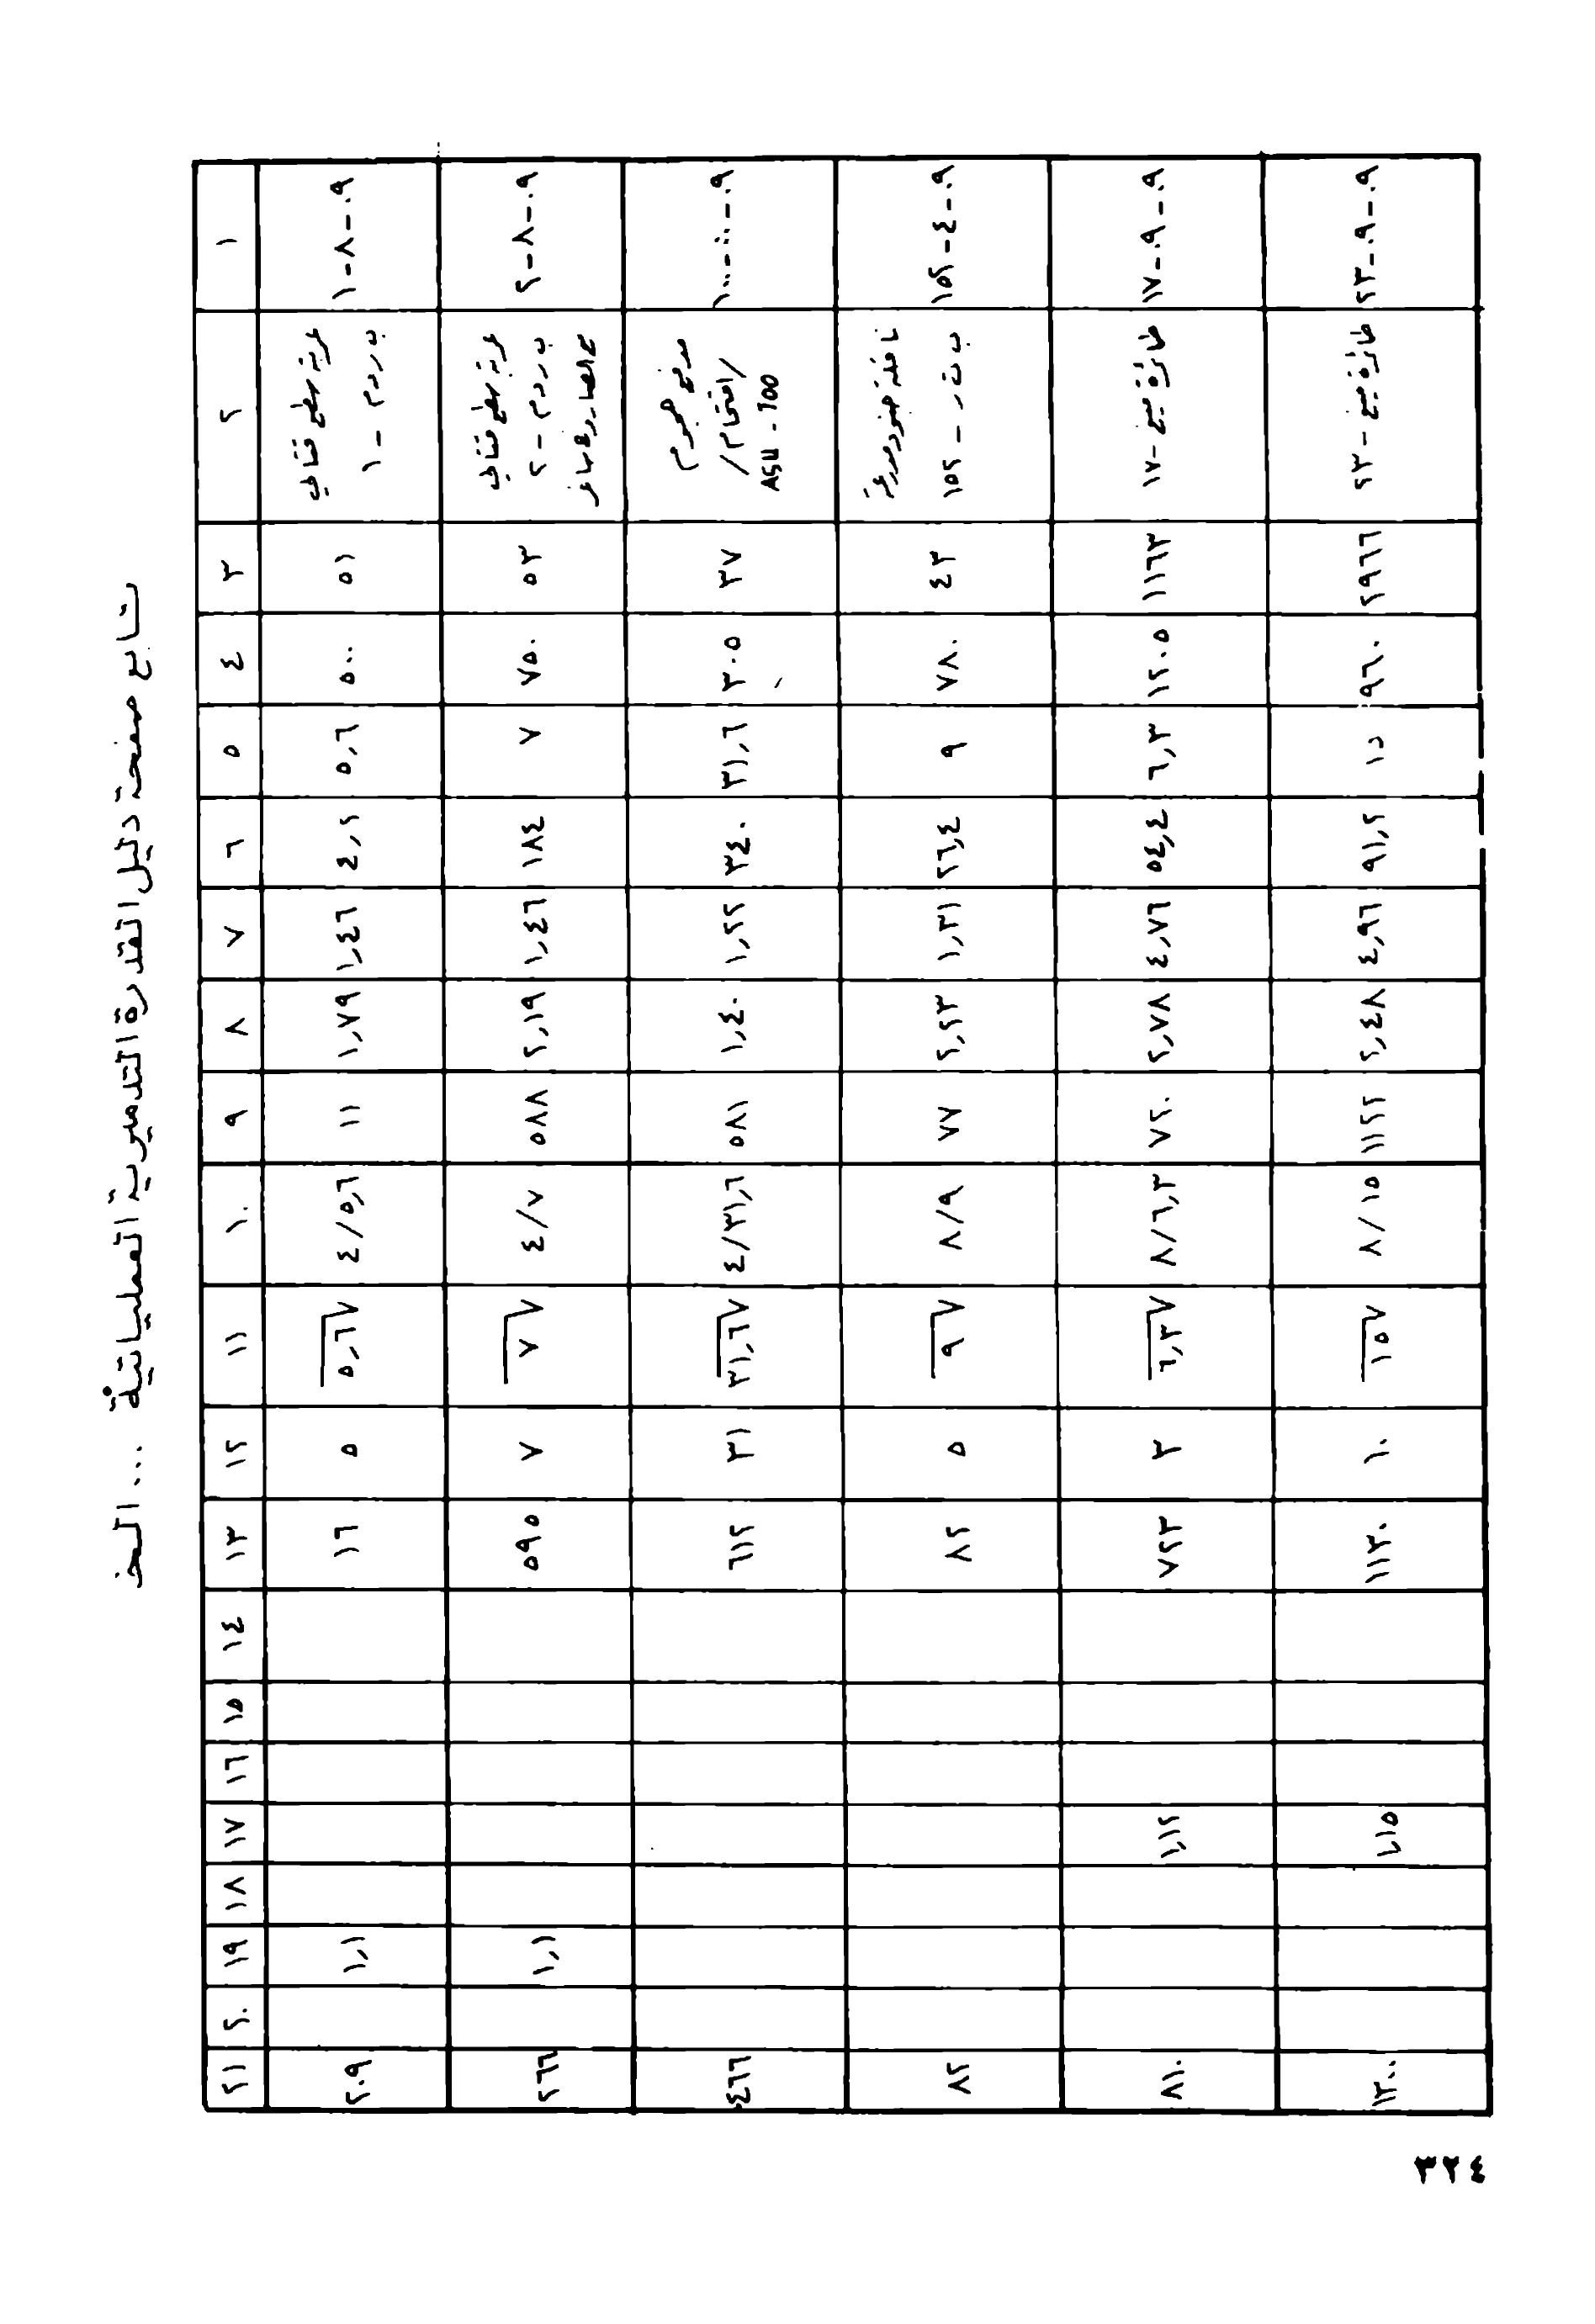 تابع صفحة دليل القدرة التدميرية العملياتية ... الخ
١ ٢ ٣ ٤ ٥ ٦ ٧ ٨ ٩ ١٠ ١١ ١٢ ١٣ ١٤ ١٥ ١٦ ١٧ ١٨ ١٩ ٢٠ ٢١
٠٩-٨-١
عربة سطع قتالي
ب ر د م - ١
٥١ ٥٠٠ ٥,٦ ٤,٢ ١,٤٦ ١,٧٩ ١١ ٤/٥,٦ √٥,٦ ٥ ١٦ ١,١ ٢٠٩
٠٩-٨-٢
عربة سطع قتالي
ب ر د م - ٢
مع الصاروخ ساغر
٥٣ ٧٥٠ ٧ ١٨٤ ١,٤٦ ٢,١٩ ٥٨٨ ٤/٧ √٧ ٧ ٥٩٥ ١,١ ٢٦٦
٠٩-٠٠-١٠٠
مدفع هجوم
/اقتحام/
ASU - 100
٣٧ ٣٠٥ ٣١,٦ ٣٤٠ ١,٢٢ ١,٤٠ ٥٨١ ٤/٣١,٦ √٣١,٦ ٣١ ٦١٢ ٤٦٦
٠٩-٤-١٥٢
ناقلة جنود مدرعة
ب ت ر - ١٥٢
٤٣ ٧٨٠ ٩ ٢٦,٤ ١,٣١ ٢,٢٣ ٧٧ ٨/٩ √٩ ٥ ٨٢ ٨٢
٠٩-٠٩-١٧
طائرة ميغ -١٧
١١٦٣ ١٢٠٥ ٦,٣ ٥٤,٤ ٤,٧٦ ٢,٧٨ ٧٢٠ ٨/٦,٣ √٦,٣ ٣ ٧٢٣ ١,١٢ ٨١٠
٠٩-٠٩-٢٣
طائرة ميغ - ٢٣
٢٩٦٦ ٩٦٠ ١٥ ٩١,٢ ٤,٩٦ ٢,٤٨ ١١٢٢ ٨/١٥ √١٥ ١٠ ١١٣٠ ١,١٥ ١٣٠٠
٣٢٤